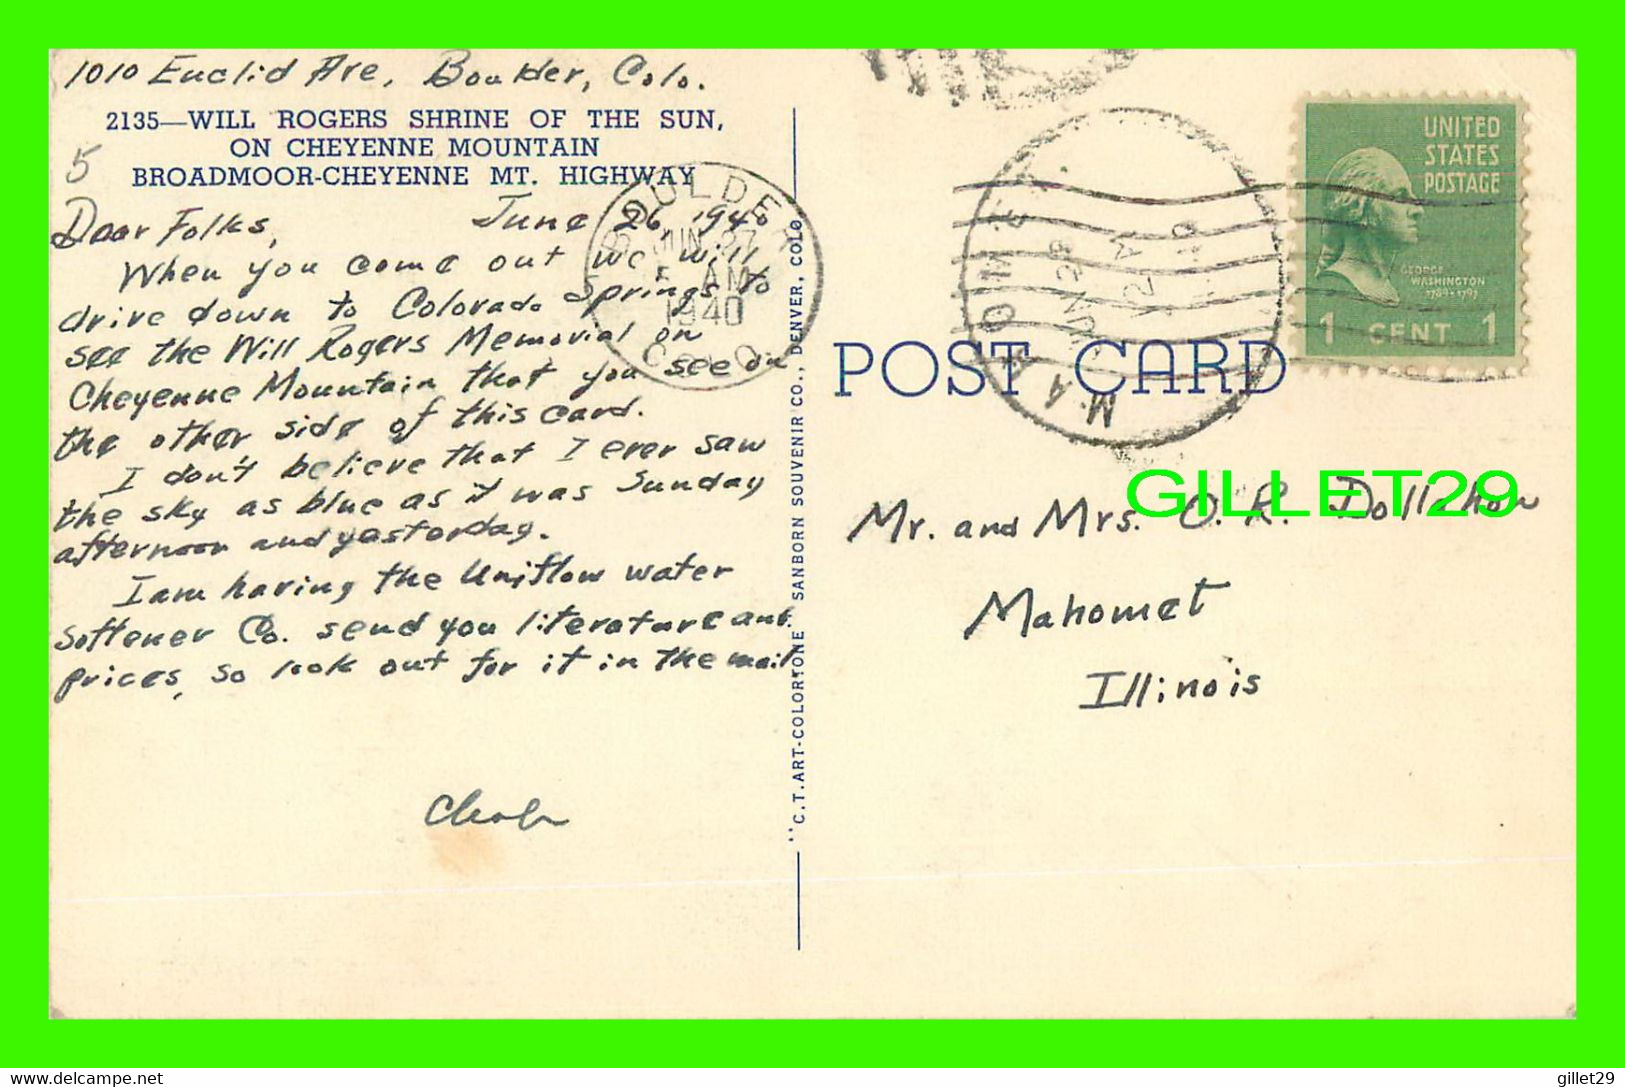 1010 Euclid Ave, Boulder, Colo.
2135—WILL ROGERS SHRINE OF THE SUN,
ON CHEYENNE MOUNTAIN
BROADMOOR-CHEYENNE MT. HIGHWAY
5
June 26, 1940
Dear Folks,
When you come out we will
drive down to Colorado Springs to
see the Will Rogers Memorial on
Cheyenne Mountain that you see on
the other side of this card.
I don't believe that I ever saw
the sky as blue as it was Sunday
afternoon and yesterday.
I am having the Uniflow water
Softener Co. send you literature and
prices, so look out for it in the mail
BOULDER
JUN 27
AM
1940
COLO
"C.T. ART-COLORTONE SANBORN SOUVENIR CO., DENVER, COLO
POST CARD
MAHOMET
JUN 28
2 AM
UNITED
STATES
POSTAGE
GEORGE
WASHINGTON
1789-1797
1 CENT 1
GILLET29
Mr. and Mrs. O. R. Dollahon
Mahomet
Illinois
delcampe.net
gillet29